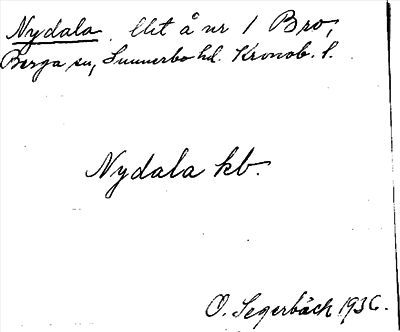 Nydala. Utt å nr 1 Bro,
Berga sn, Sunnerbo hd. Kronob. l.
Nydala kb.
O. Segerbäck 1936.